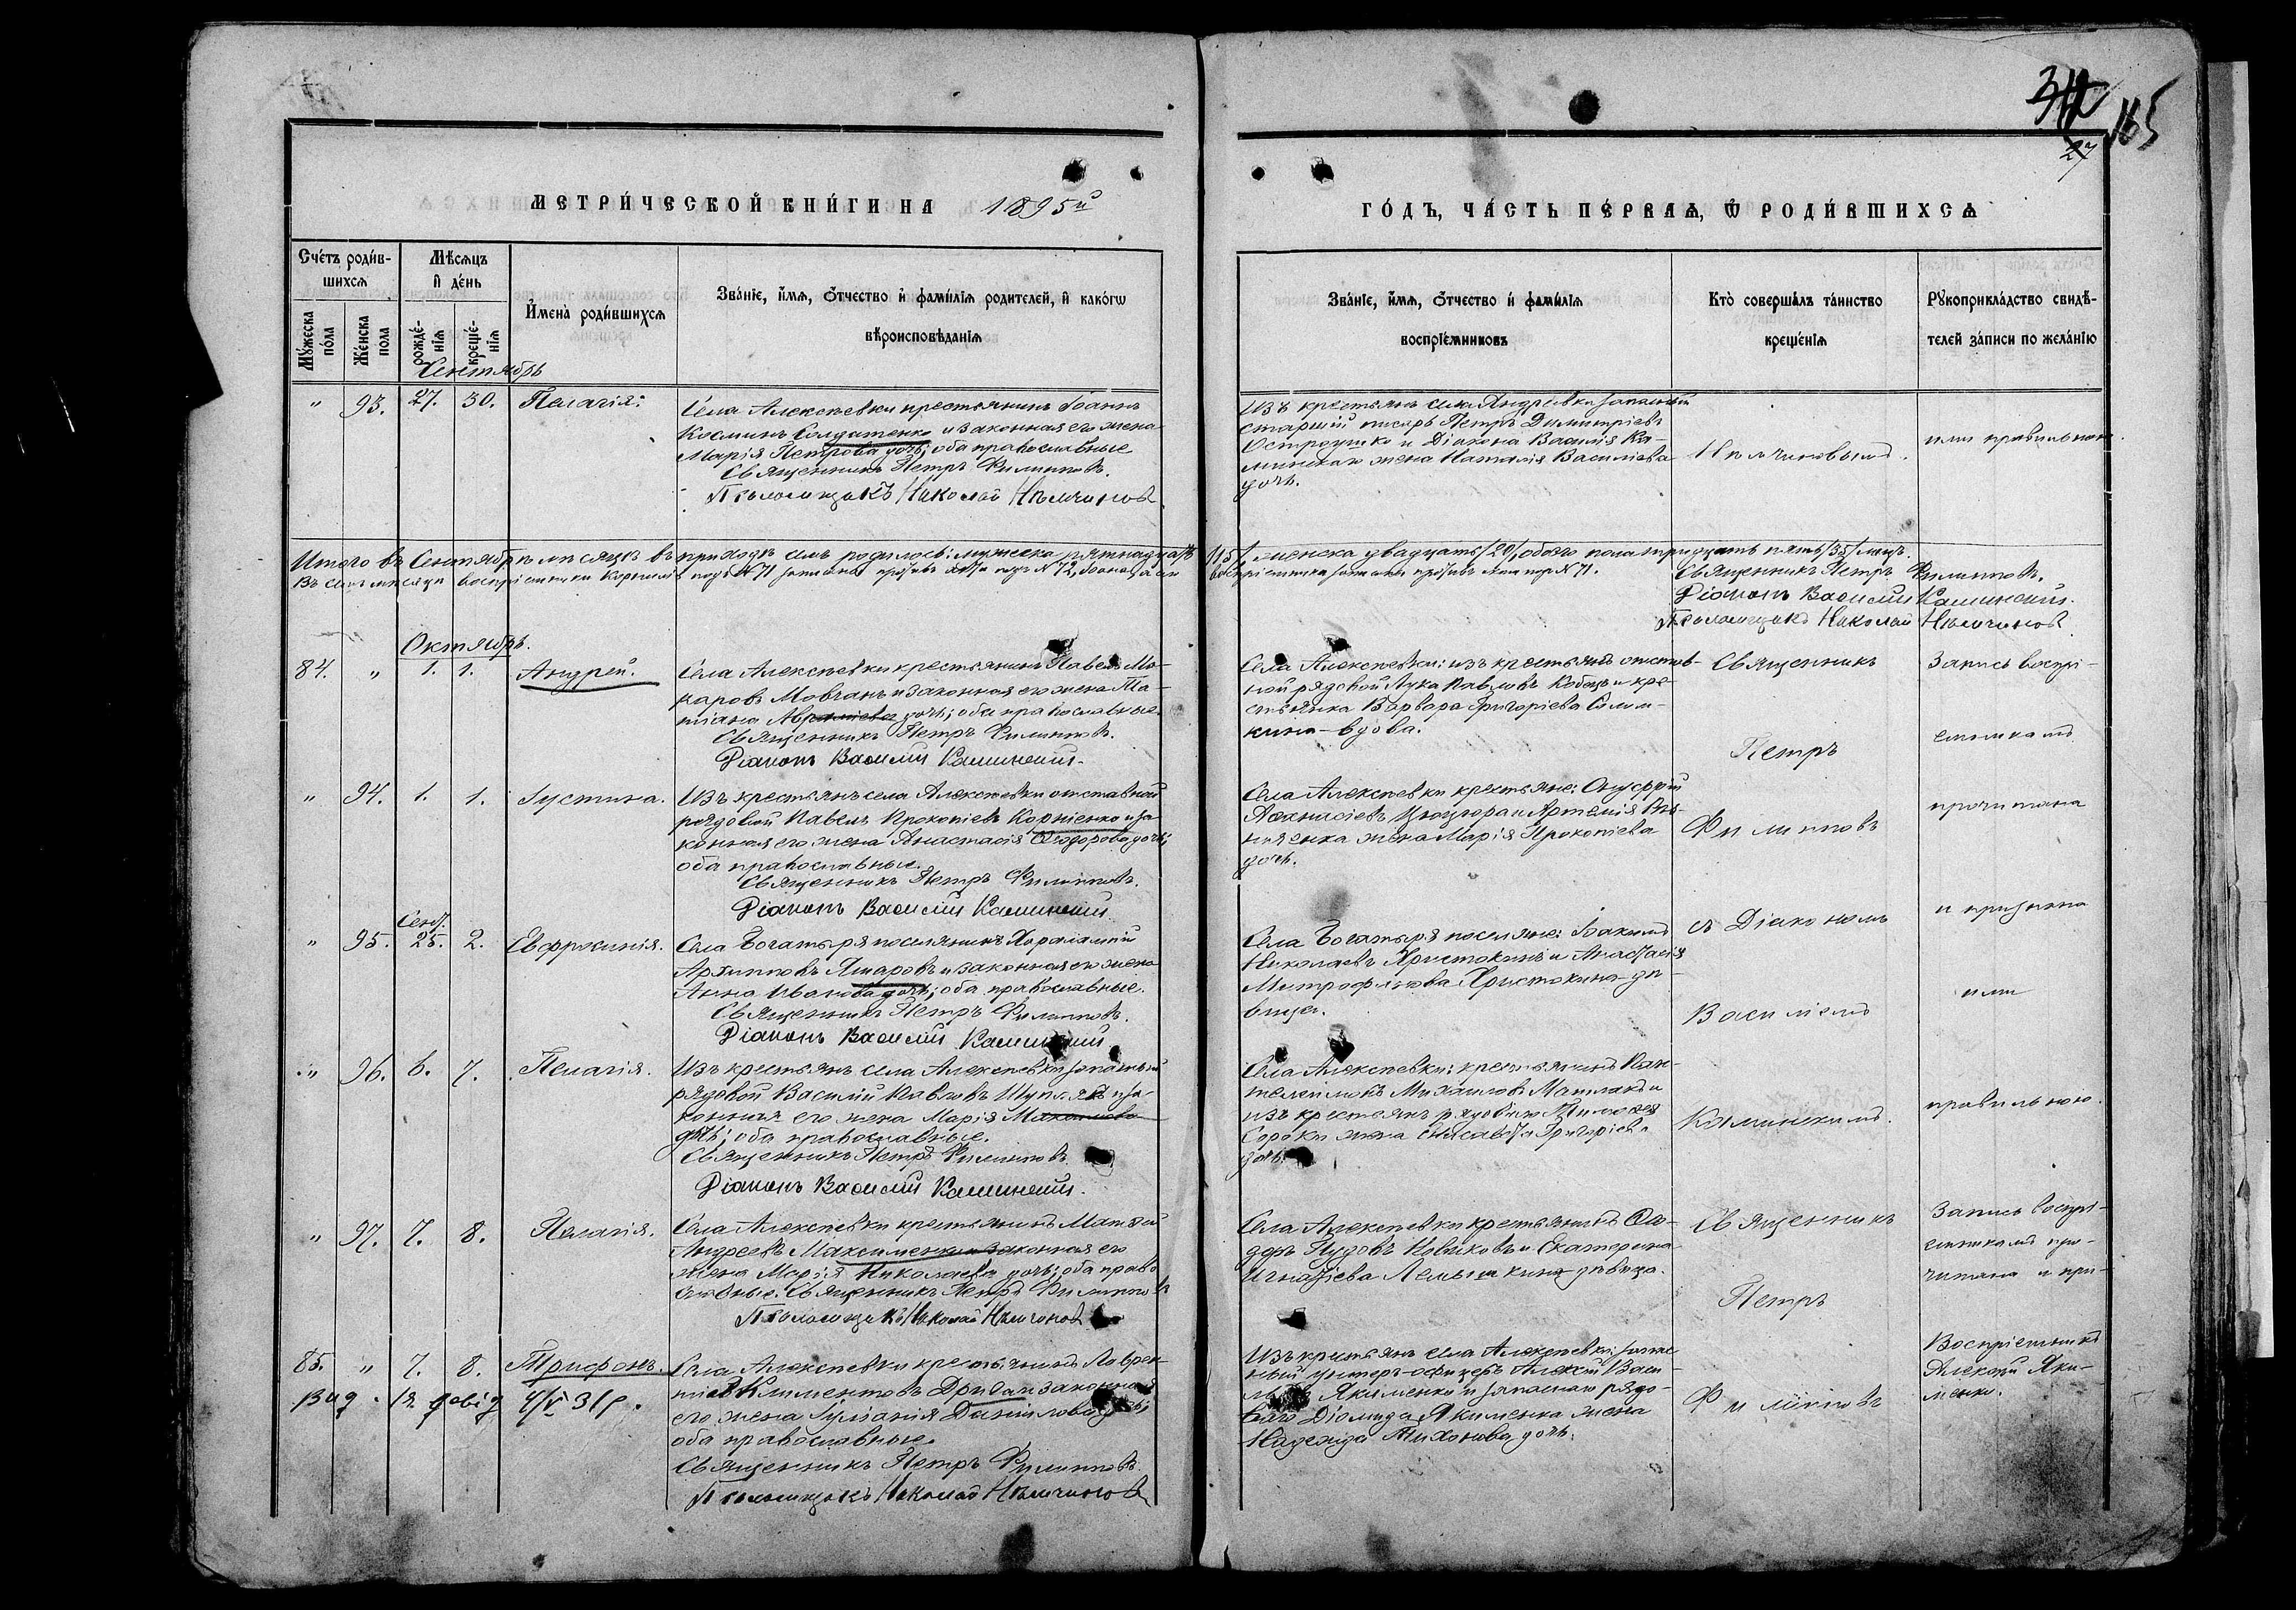 312
165
27
МЕТРИ́ЧЕСКОЙ КНИ́ГИ НА 1895й
ГО́ДЪ, ЧА́СТЬ ПЕ́РВАѦ, Ѿ РОДИ́ВШИХСѦ
Сче́тъ роди́в-
шихсѧ
Мꙋ́жеска по́ла
Же́нска пола
Мѣ́сѧцъ
и҆ де́нь
рожде́-
нїѧ
креще́-
нїѧ
И҆мена̀ роди́вшихсѧ
Зва́нїе, и҆́мѧ, ѻ҆́тчество и҆ фами́лїѧ родителей, и҆ како́гѡ
вѣроисповѣ́данїѧ
Зва́нїе, и҆́мѧ, ѻ҆́тчество и҆ фами́лїѧ
воспрїе́мниковъ
Кто̀ соверша́лъ та́инство
креще́нїѧ
Рꙋкоприкла́дство свидѣ́-
телей за́писи по жела́нїю
Сентябрь
" 93. 27. 30. Пелагія.
Села Алексѣевки крестьянинъ Іоаннъ
Косминъ Солдатенко и законная его жена
Марія Петрова дочь; оба православные
Священникъ Петръ Филипповъ.
Псаломщикъ Николай Нѣмчиновъ
Изъ крестьянъ села Андреевки запасный
старшій писарь Петръ Димитріевъ
Остроушко и Діакона Василія Ка-
минскаго жена Наталія Василіева
дочь.
Нѣмчиновымъ.
ими правильною.
Итого въ Сентябрѣ мѣсяцѣ въ приходѣ семъ родилось: мужеска пятнадцать /15/ женска двадцать /20/, обоего пола тридцать пять /35/ лицъ.
Священникъ Петръ Филипповъ.
Діаконъ Василій Каминскій.
Псаломщикъ Николай Нѣмчиновъ
Октябрь.
84. " 1. 1. Андрей.
Села Алексѣевки крестьянинъ Павелъ Ма-
каровъ Мовчанъ и законная его жена Та-
тіана Авраміева дочь; оба православные.
Священникъ Петръ Филипповъ.
Діаконъ Василій Каминскій.
Села Алексѣевки: изъ крестьянъ отстав-
ной рядовой Лука Павловъ Кобецъ и кре-
стьянка Варвара Григоріева
вдова.
Священникъ
Петръ
Запись воспрі-
емникамъ
" 94. 1. 1. Іустина.
Изъ крестьянъ села Алексѣевки отставной
рядовой Павелъ Прокопіевъ Корніенко и за-
конная его жена Анастасія Ѳеодорова дочь;
оба православные.
Священникъ Петръ Филипповъ.
Діаконъ Василій Каминскій.
Села Алексѣевки крестьяне: Онуфрій
Аѳанасіевъ Цюцюра и Артемія
жена Марія Прокопіева
дочь.
Филипповъ
прочитана
Сент.
" 95. 25. 2. Евфросинія.
Села Богатыря поселянинъ Харалампій
Архипповъ Ялларовъ и законная его жена
Анна Иванова дочь; оба православные.
Священникъ Петръ Филипповъ.
Діаконъ Василій Каминскій
Села Богатыря поселяне: Іоакимъ
Николаевъ Христокинъ и Анастасія
Митрофанова Христокина дѣ-
вица.
съ Діакономъ
Василіемъ
и признана
ими
" 96. 6. 7. Пелагія.
Изъ крестьянъ села Алексѣевки запасный
рядовой Василій Павловъ и за-
конная его жена Марія
дочь; оба православные.
Священникъ Петръ Филипповъ
Діаконъ Василій Каминскій.
Села Алексѣевки: крестьянинъ Пан-
телеимонъ Михаиловъ и
изъ крестьянъ рядового Тимоѳея
Сороки жена Елисавета Григоріева
дочь.
Каминскимъ.
правильною.
" 97. 7. 8. Пелагія.
Села Алексѣевки крестьянинъ Матѳей
Андреевъ Максименко и законная его
жена Марія Николаева дочь; оба право-
славные. Священникъ Петръ Филипповъ
Псаломщикъ Николай Нѣмчиновъ
Села Алексѣевки крестьянинъ Ѳео-
доръ Новиковъ и Екатерина
Игнатіева дѣвица.
Священникъ
Петръ
Запись воспрі-
емникамъ про-
читана и при-
85. " 7. 8. Трифонъ.
Вид. довід. 4/V 31р.
Села Алексѣевки крестьянинъ Лаврен-
тій Климентовъ Дрибас и законная
его жена Іуліанія Даніилова дочь;
оба православные.
Священникъ Петръ Филипповъ.
Псаломщикъ Николай Нѣмчиновъ
Изъ крестьянъ села Алексѣевки: запас-
ный унтеръ-офицеръ Алексій Васи-
льевъ Якименко и запаснаго рядо-
ваго Діомида Якименка жена
Надежда Тихонова дочь.
Филипповъ
Воспріемникъ
Алексій Яки-
менко.